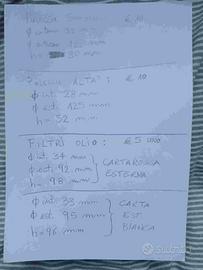 € 10
φ int. 35 mm
mm
h= 80 mm
ALTA : € 10
φ int. 28 mm
φ est. 125 mm
h= 32 mm
FILTRI OLIO : € 5 UNO
φ int. 34 mm
φ est. 92 mm } CARTA ROSSA
h= 98 mm ESTERNA
φ int. 33 mm CARTA
φ est. 95 mm } EST.
h= 96 mm BIANCA
Subito